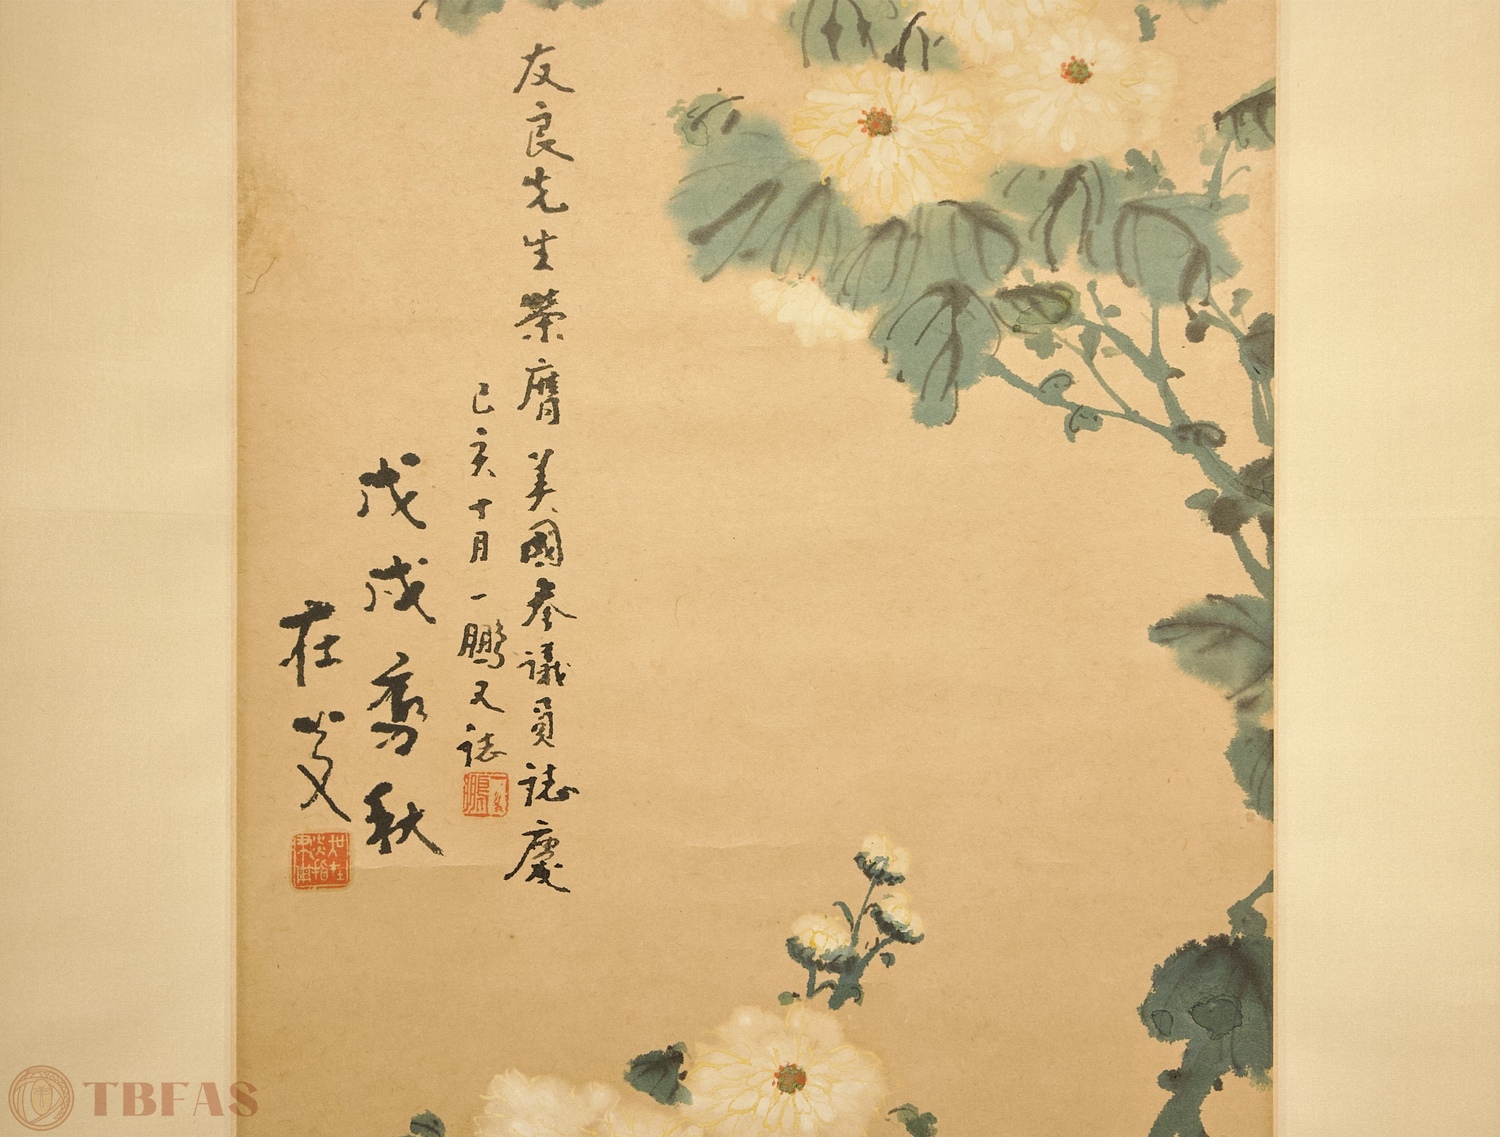 友良先生榮膺美國參議員誌慶
己亥十月一鵬又誌
戊戌喬秋
在
TBFAS